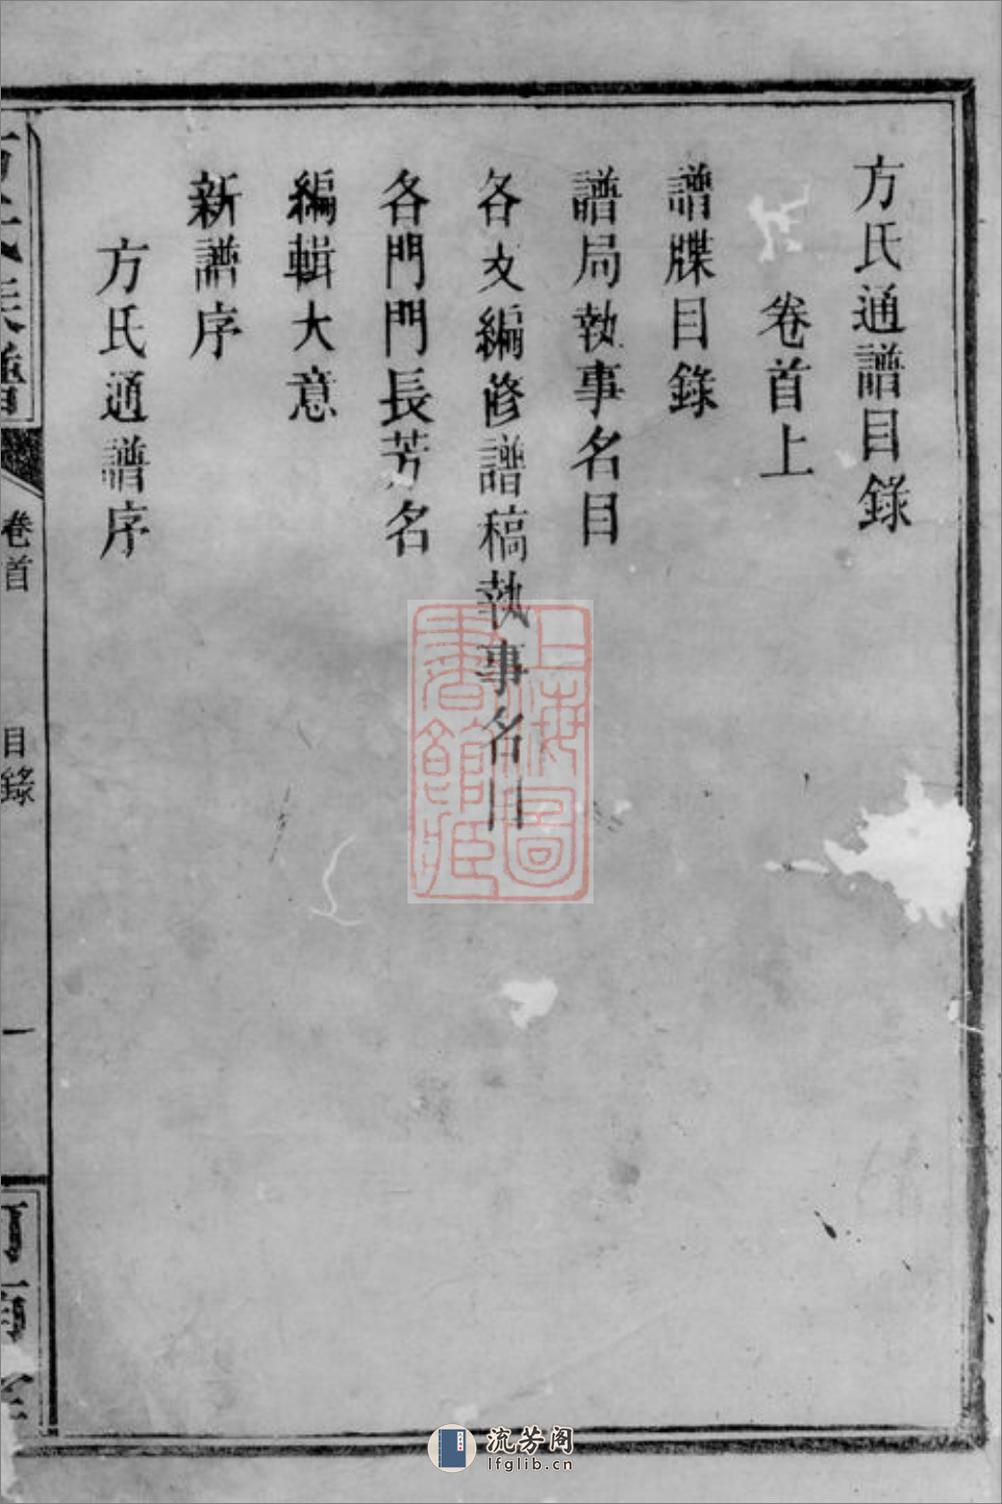 方氏通譜目錄
卷首上
譜牒目錄
譜局執事名目
各支編修譜稿執事名目
各門門長芳名
編輯大意
新譜序
方氏通譜序
卷首
目錄
一
上海圖
書館藏
流芳阁
lfglib.cn